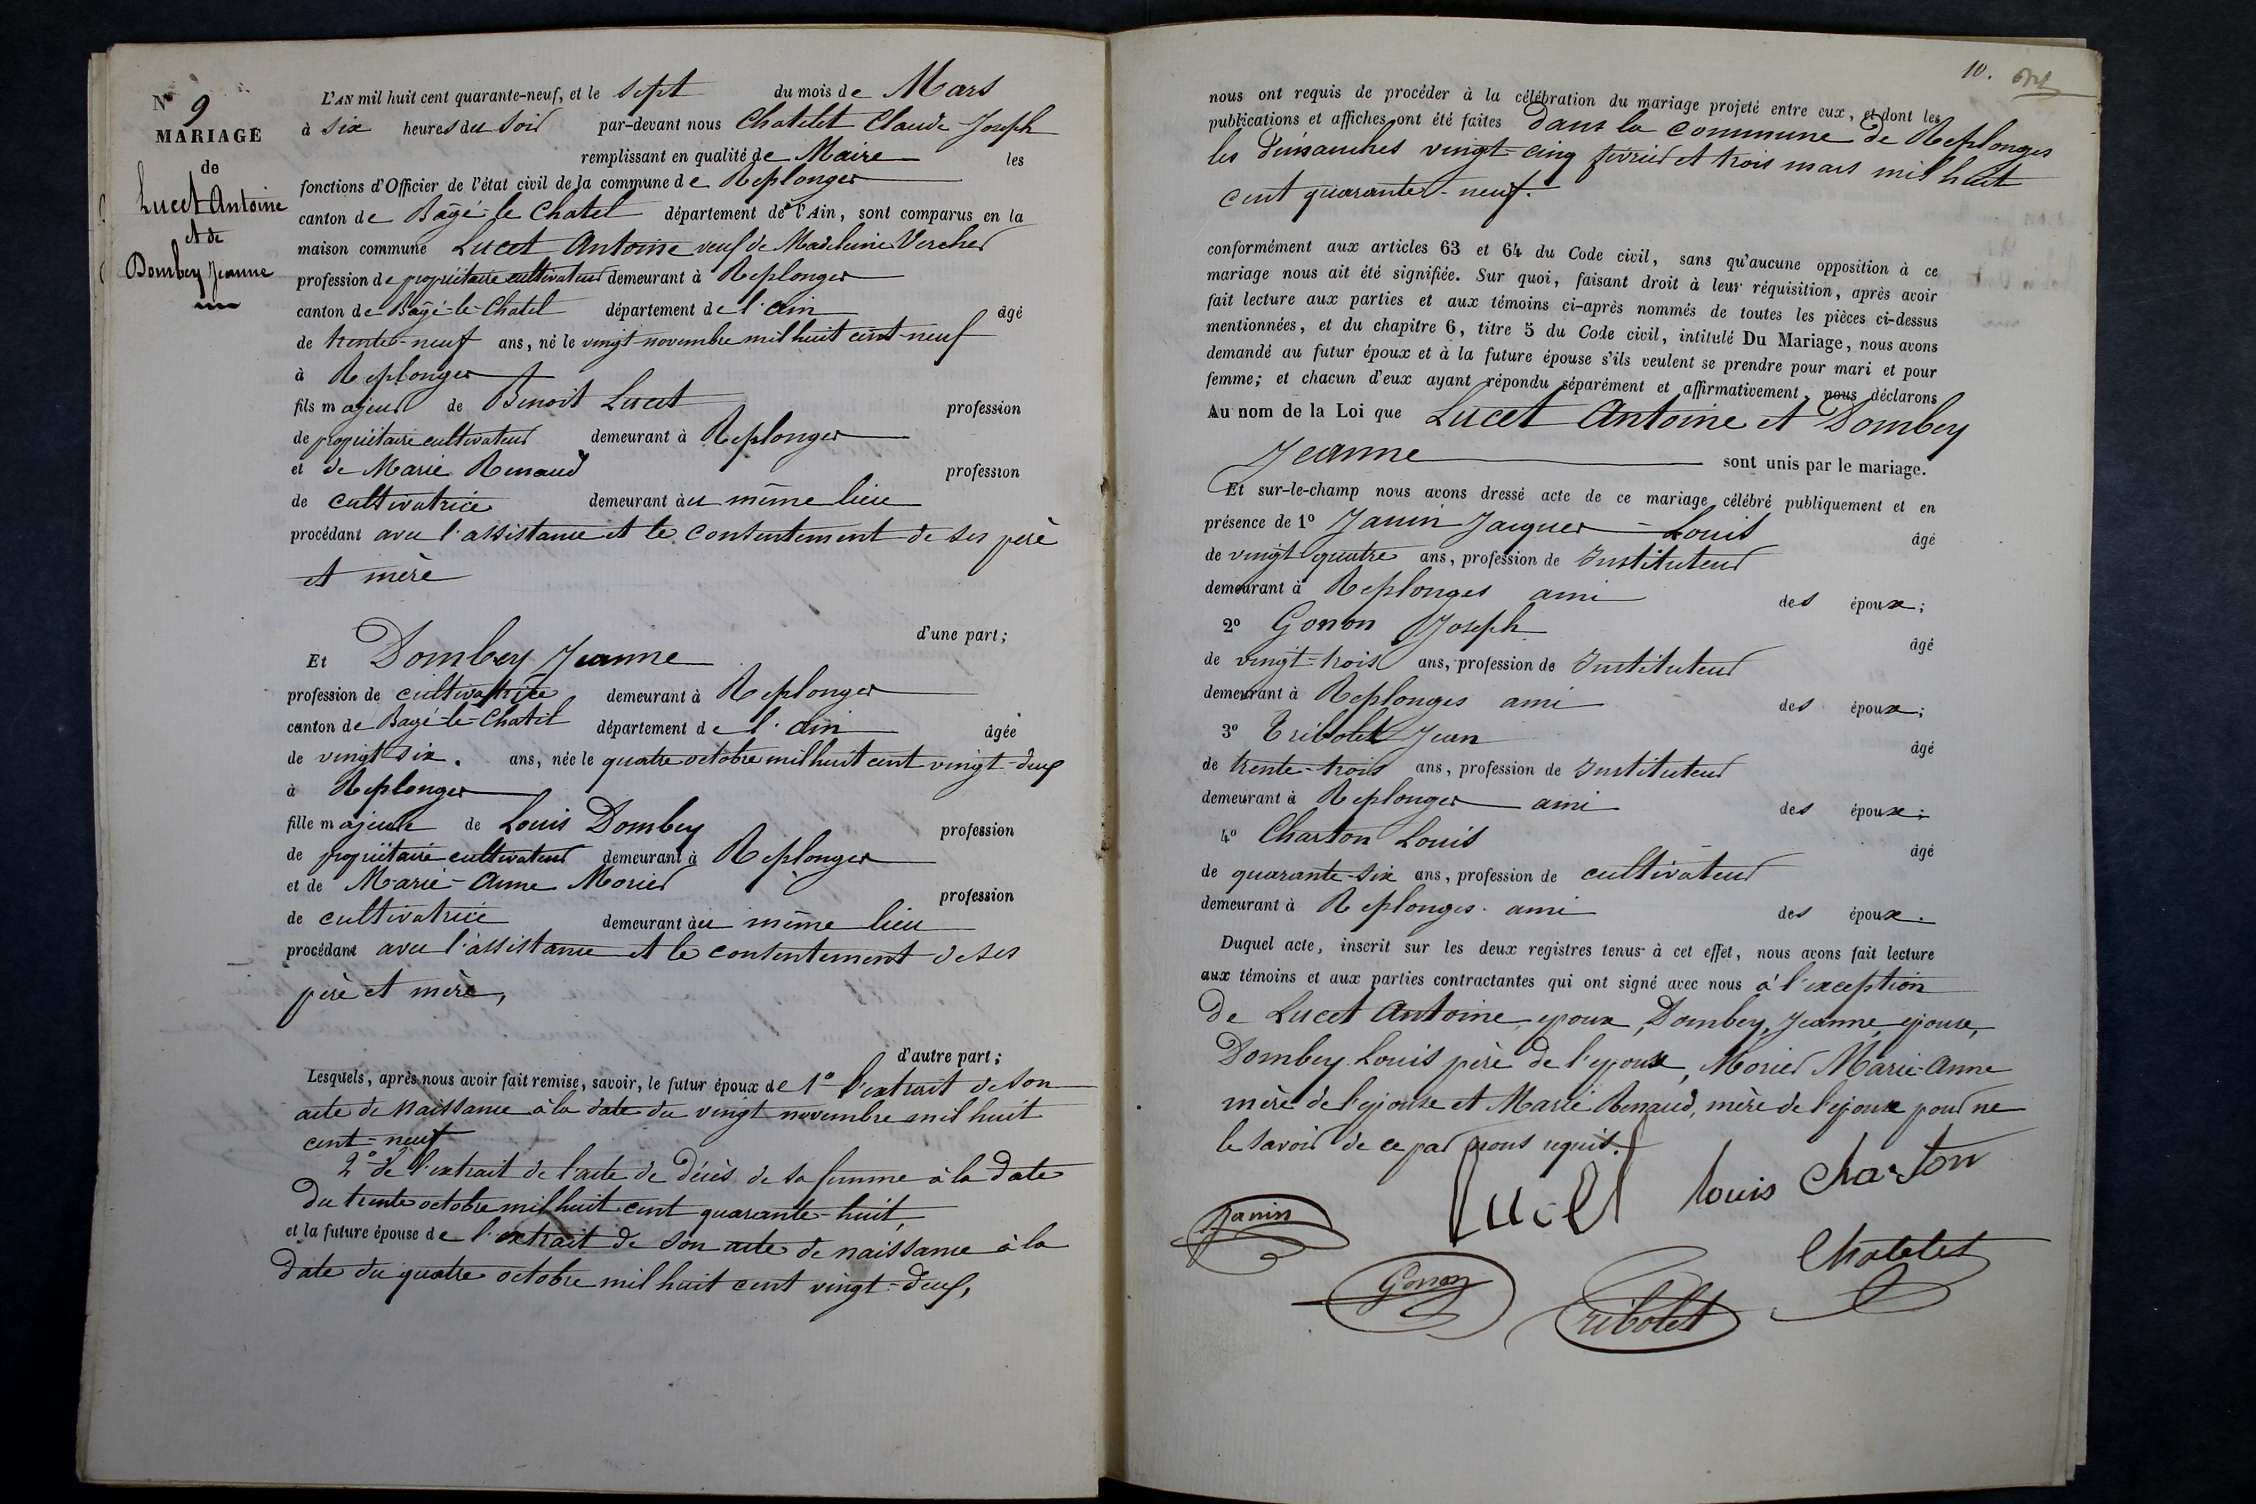 N° 9
MARIAGE
de
Lucet Antoine
et de
Dombey Jeanne
L'AN mil huit cent quarante-neuf, et le sept du mois de Mars
à six heures du soir par-devant nous Chatelet Claude-Joseph
remplissant en qualité de Maire les
fonctions d'Officier de l'état civil de la commune de Replonges
canton de Bâgé-le-Chatel département de l'Ain, sont comparus en la
maison commune Lucet Antoine veuf de Madeleine Vercher
profession de propriétaire cultivateur demeurant à Replonges
canton de Bâgé-le-Chatel département de l'ain âgé
de trente-neuf ans, né le vingt novembre mil huit cent-neuf
à Replonges
fils majeur de Benoit Lucet profession
de propriétaire cultivateur demeurant à Replonges
et de Marie Renaud profession
de cultivatrice demeurant au même lieu
procédant avec l'assistance et le consentement de ses père
et mère
d'une part;
Et Dombey Jeanne
profession de cultivatrice demeurant à Replonges
canton de Bagé-le-Chatel département de l'ain âgée
de vingt six. ans, née le quatre octobre mil huit cent vingt-deux
à Replonges
fille majeure de Louis Dombey profession
de propriétaire cultivateur demeurant à Replonges
et de Marie-Anne Morier profession
de cultivatrice demeurant au même lieu
procédant avec l'assistance et le consentement de ses
père et mère,
d'autre part;
Lesquels, après nous avoir fait remise, savoir, le futur époux de 1° l'extrait de son
acte de naissance à la date du vingt novembre mil huit
cent-neuf
2° de l'extrait de l'acte de décès de sa femme à la date
du trente octobre mil huit cent quarante-huit,
et la future épouse de l'extrait de son acte de naissance à la
date du quatre octobre mil huit cent vingt-deux,
10.
nous ont requis de procéder à la célébration du mariage projeté entre eux, et dont les
publications et affiches ont été faites dans la commune de Replonges
les dimanches vingt-cinq février et trois mars mil huit
cent quarante-neuf.
conformément aux articles 63 et 64 du Code civil, sans qu'aucune opposition à ce
mariage nous ait été signifiée. Sur quoi, faisant droit à leur réquisition, après avoir
fait lecture aux parties et aux témoins ci-après nommés de toutes les pièces ci-dessus
mentionnées, et du chapitre 6, titre 5 du Code civil, intitulé Du Mariage, nous avons
demandé au futur époux et à la future épouse s'ils veulent se prendre pour mari et pour
femme; et chacun d'eux ayant répondu séparément et affirmativement, nous déclarons
Au nom de la Loi que Lucet Antoine et Dombey
Jeanne sont unis par le mariage.
Et sur-le-champ nous avons dressé acte de ce mariage célébré publiquement et en
présence de 1° Janin Jacques-Louis âgé
de vingt-quatre ans, profession de Instituteur
demeurant à Replonges ami des époux;
2° Gonon Joseph âgé
de vingt-trois ans, profession de Instituteur
demeurant à Replonges ami des époux;
3° Tribolet Jean âgé
de trente-trois ans, profession de Instituteur
demeurant à Replonges ami des époux;
4° Charton Louis âgé
de quarante-six ans, profession de cultivateur
demeurant à Replonges ami des époux.
Duquel acte, inscrit sur les deux registres tenus à cet effet, nous avons fait lecture
aux témoins et aux parties contractantes qui ont signé avec nous à l'exception
de Lucet Antoine, epoux, Dombey, Jeanne, epouse,
Dombey Louis père de l'epouse, Morier Marie-Anne
mère de l'epouse et Marie Renaud, mère de l'epoux pour ne
le savoir de ce par nous requis.
Lucet Louis Charton
Janin
Chatelet
Gonon
Tribolet